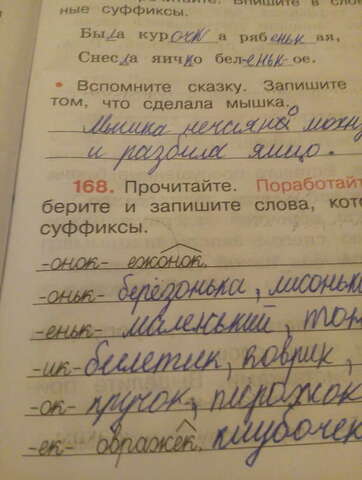 ные суффиксы.
Была курочка рябенькая,
Снесла яичко беленькое.
• Вспомните сказку. Запишите
том, что сделала мышка.
Мышка нечаянно
и разбила яйцо.
168. Прочитайте. Поработай
берите и запишите слова, кот
суффиксы.
-онок- ежонок,
-оньк- берёзонька, лисонька
-еньк- маленький, тон
-ик- билетик, коврик,
-ок- кружок, пирожок
-ек- овражек, клубочек